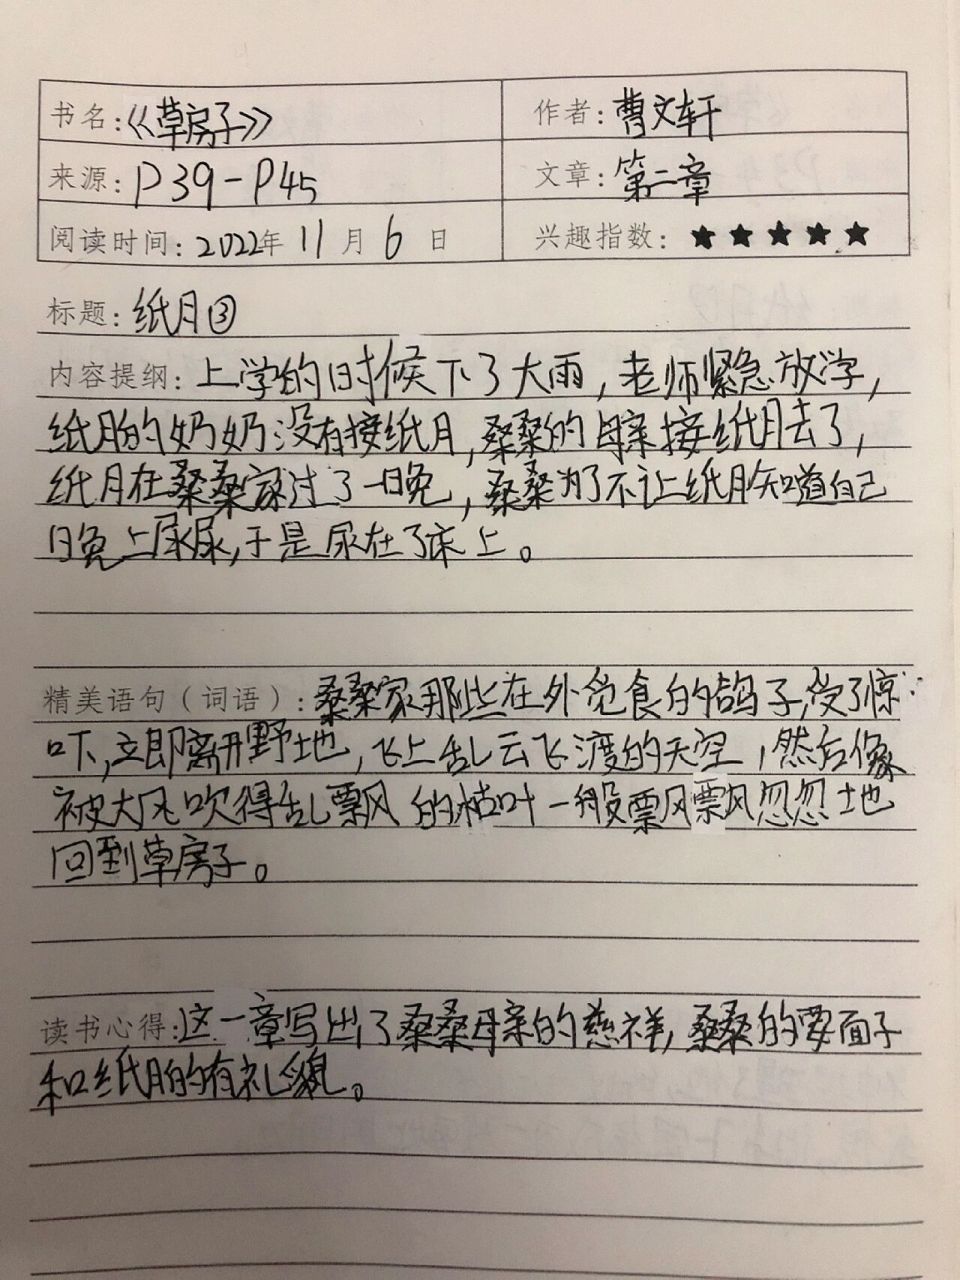 书名:《草房子》 作者:曹文轩
来源:P39-P45 文章:第二章
阅读时间:2022年11月6日 兴趣指数:★★★★★
标题:纸月③
内容提纲:上学的时候下了大雨,老师紧急放学,
纸月的奶奶没有接纸月,桑桑的母亲接纸月去了,
纸月在桑桑家过了一晚,桑桑为了不让纸月知道自己
晚上尿尿,于是尿在了床上。
精美语句(词语):桑桑家那些在外觅食的鸽子,受了惊
吓,立即离开野地,飞上乱云飞渡的天空,然后像
被大风吹得乱飘的枯叶一般飘飘忽忽地
回到草房子。
读书心得:这一章写出了桑桑母亲的慈祥,桑桑的要面子
和纸月的有礼貌。